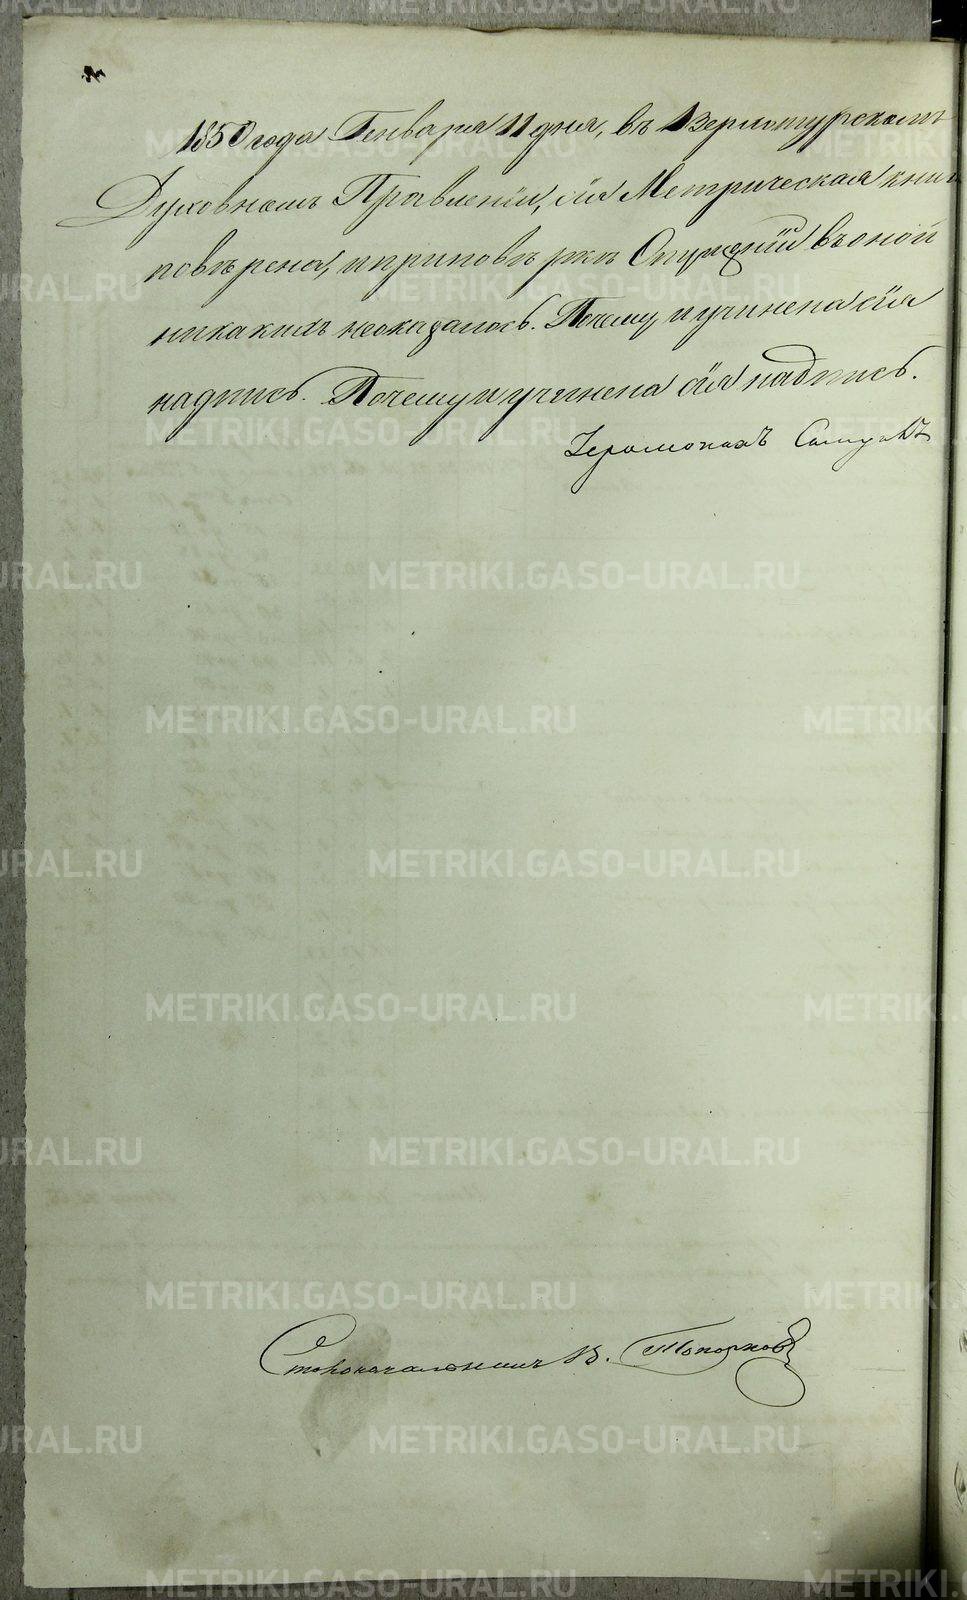 1850 года Генваря 11 дня, въ Верхотурскомъ
Духовномъ Правленіи, сія Метрическая книга
повѣрена, и приповѣркѣ Опущеній въ оной
никакихъ неоказалось. Почему, и учинена сія
надпись. Почему и учинена сія надпись.
Іеромонахъ
Столоначальникъ В. Топорковъ
METRIKI.GASO-URAL.RU